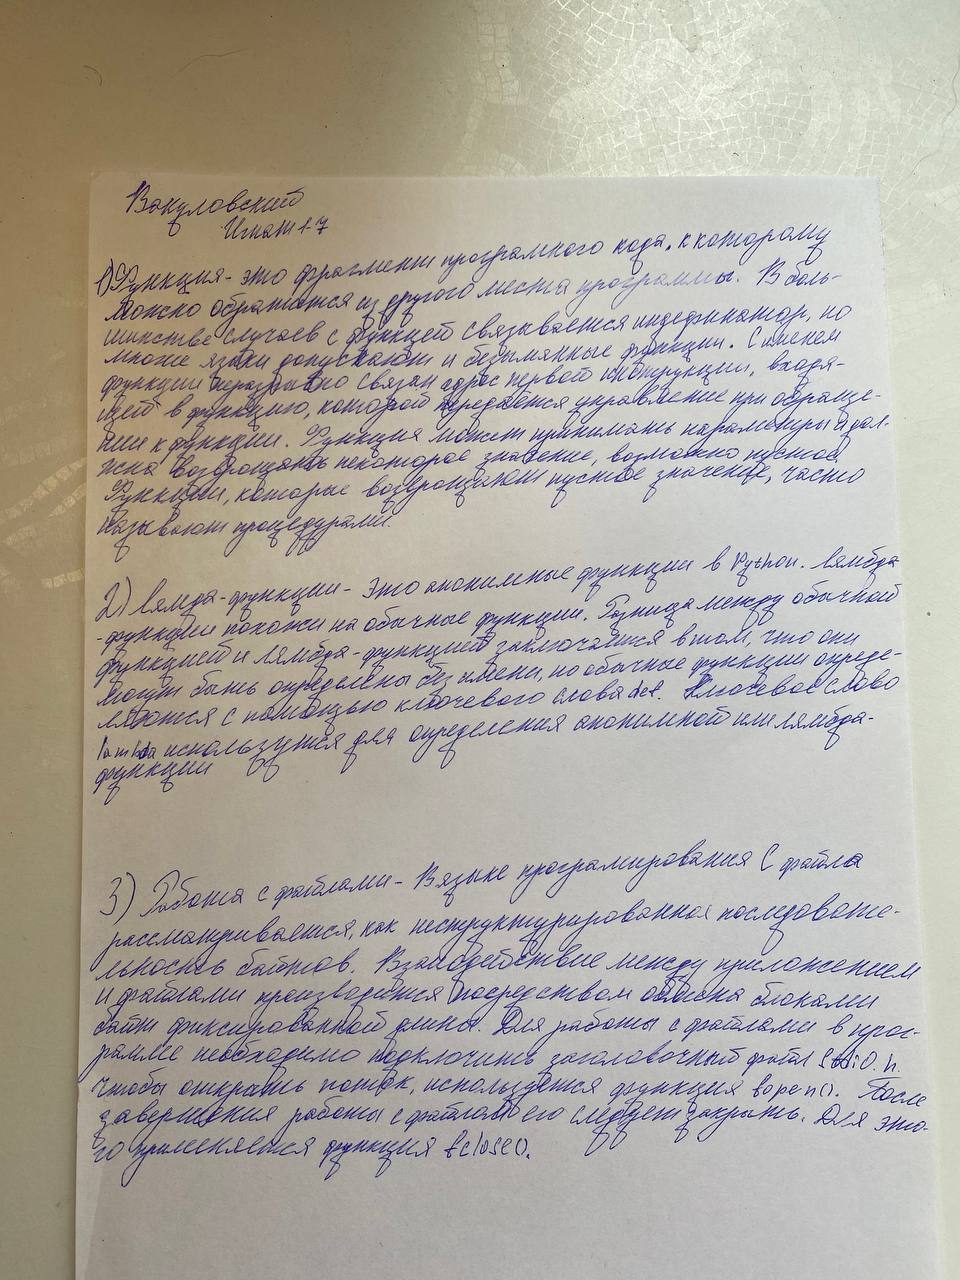 Вакуловский
Игнат 1-7
1) Функция - это фрагмент програмного кода, к которому
можно обратится из другого места программы. В боль-
шинстве случаев с функцей связывается индефикатор, но
многие языки допускают и безымянные функции. С именем
функции неразрывно связан адрес первой инструкции, входя-
щей в функцию, которой передается управление при обраще-
нии к функции. Функция может принимать параметры и дол-
жна возвращать некоторое значение, возможно пустое.
Функции, которые возвращают пустое значение, часто
называют процедурами.
2) Лямда-функции - это анонимные функции в Python. Лямбда
-функции похожи на обычные функции. Разница между обычной
функцией и лямбда-функцией заключается в том, что они
могут быть определены без имени, но обычные функции опреде-
ляются с помощью ключевого слова def. Ключевое слово
lambda используется для определения анонимной или лямбда-
функции
3) Работа с файлами - В языке програмирования С файла
рассматривается, как неструктурированная последовате-
льность байтов. Взаимодействие между приложением
и файлами производится посредством обмена блоками
байт фиксированной длины. Для работы с файлами в прог-
рамме необходимо подключить заголовочный файл StdiO.h.
Чтобы открыть поток, используется функция fopen(). После
завершения работы с файлом его следует закрыть. Для это-
го применяется функция fclose().